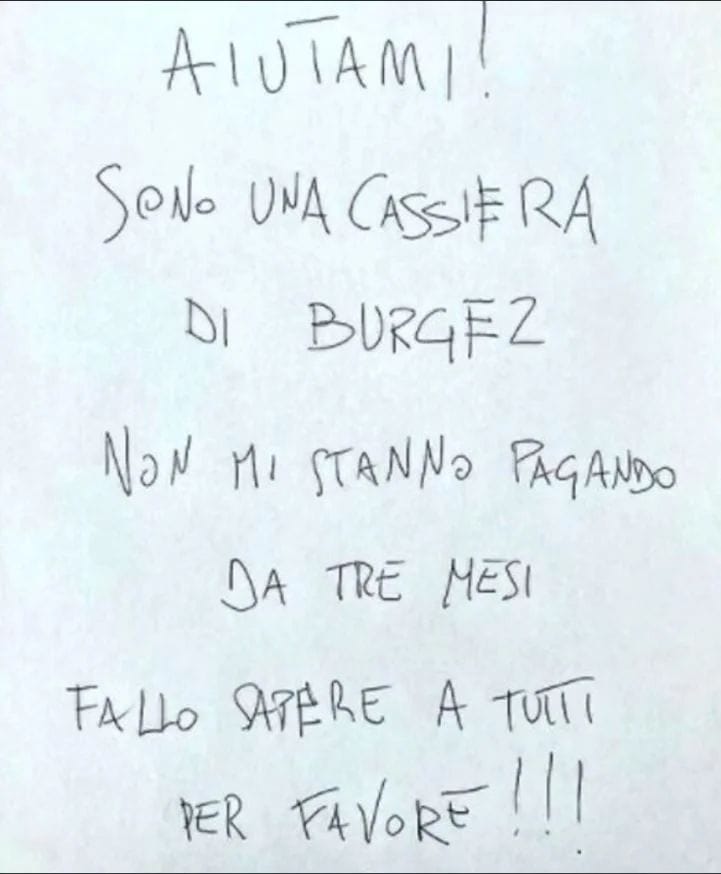 AIUTAMI!
SONO UNA CASSIERA
DI BURGEZ
NON MI STANNO PAGANDO
DA TRE MESI
FALLO SAPERE A TUTTI
PER FAVORE!!!